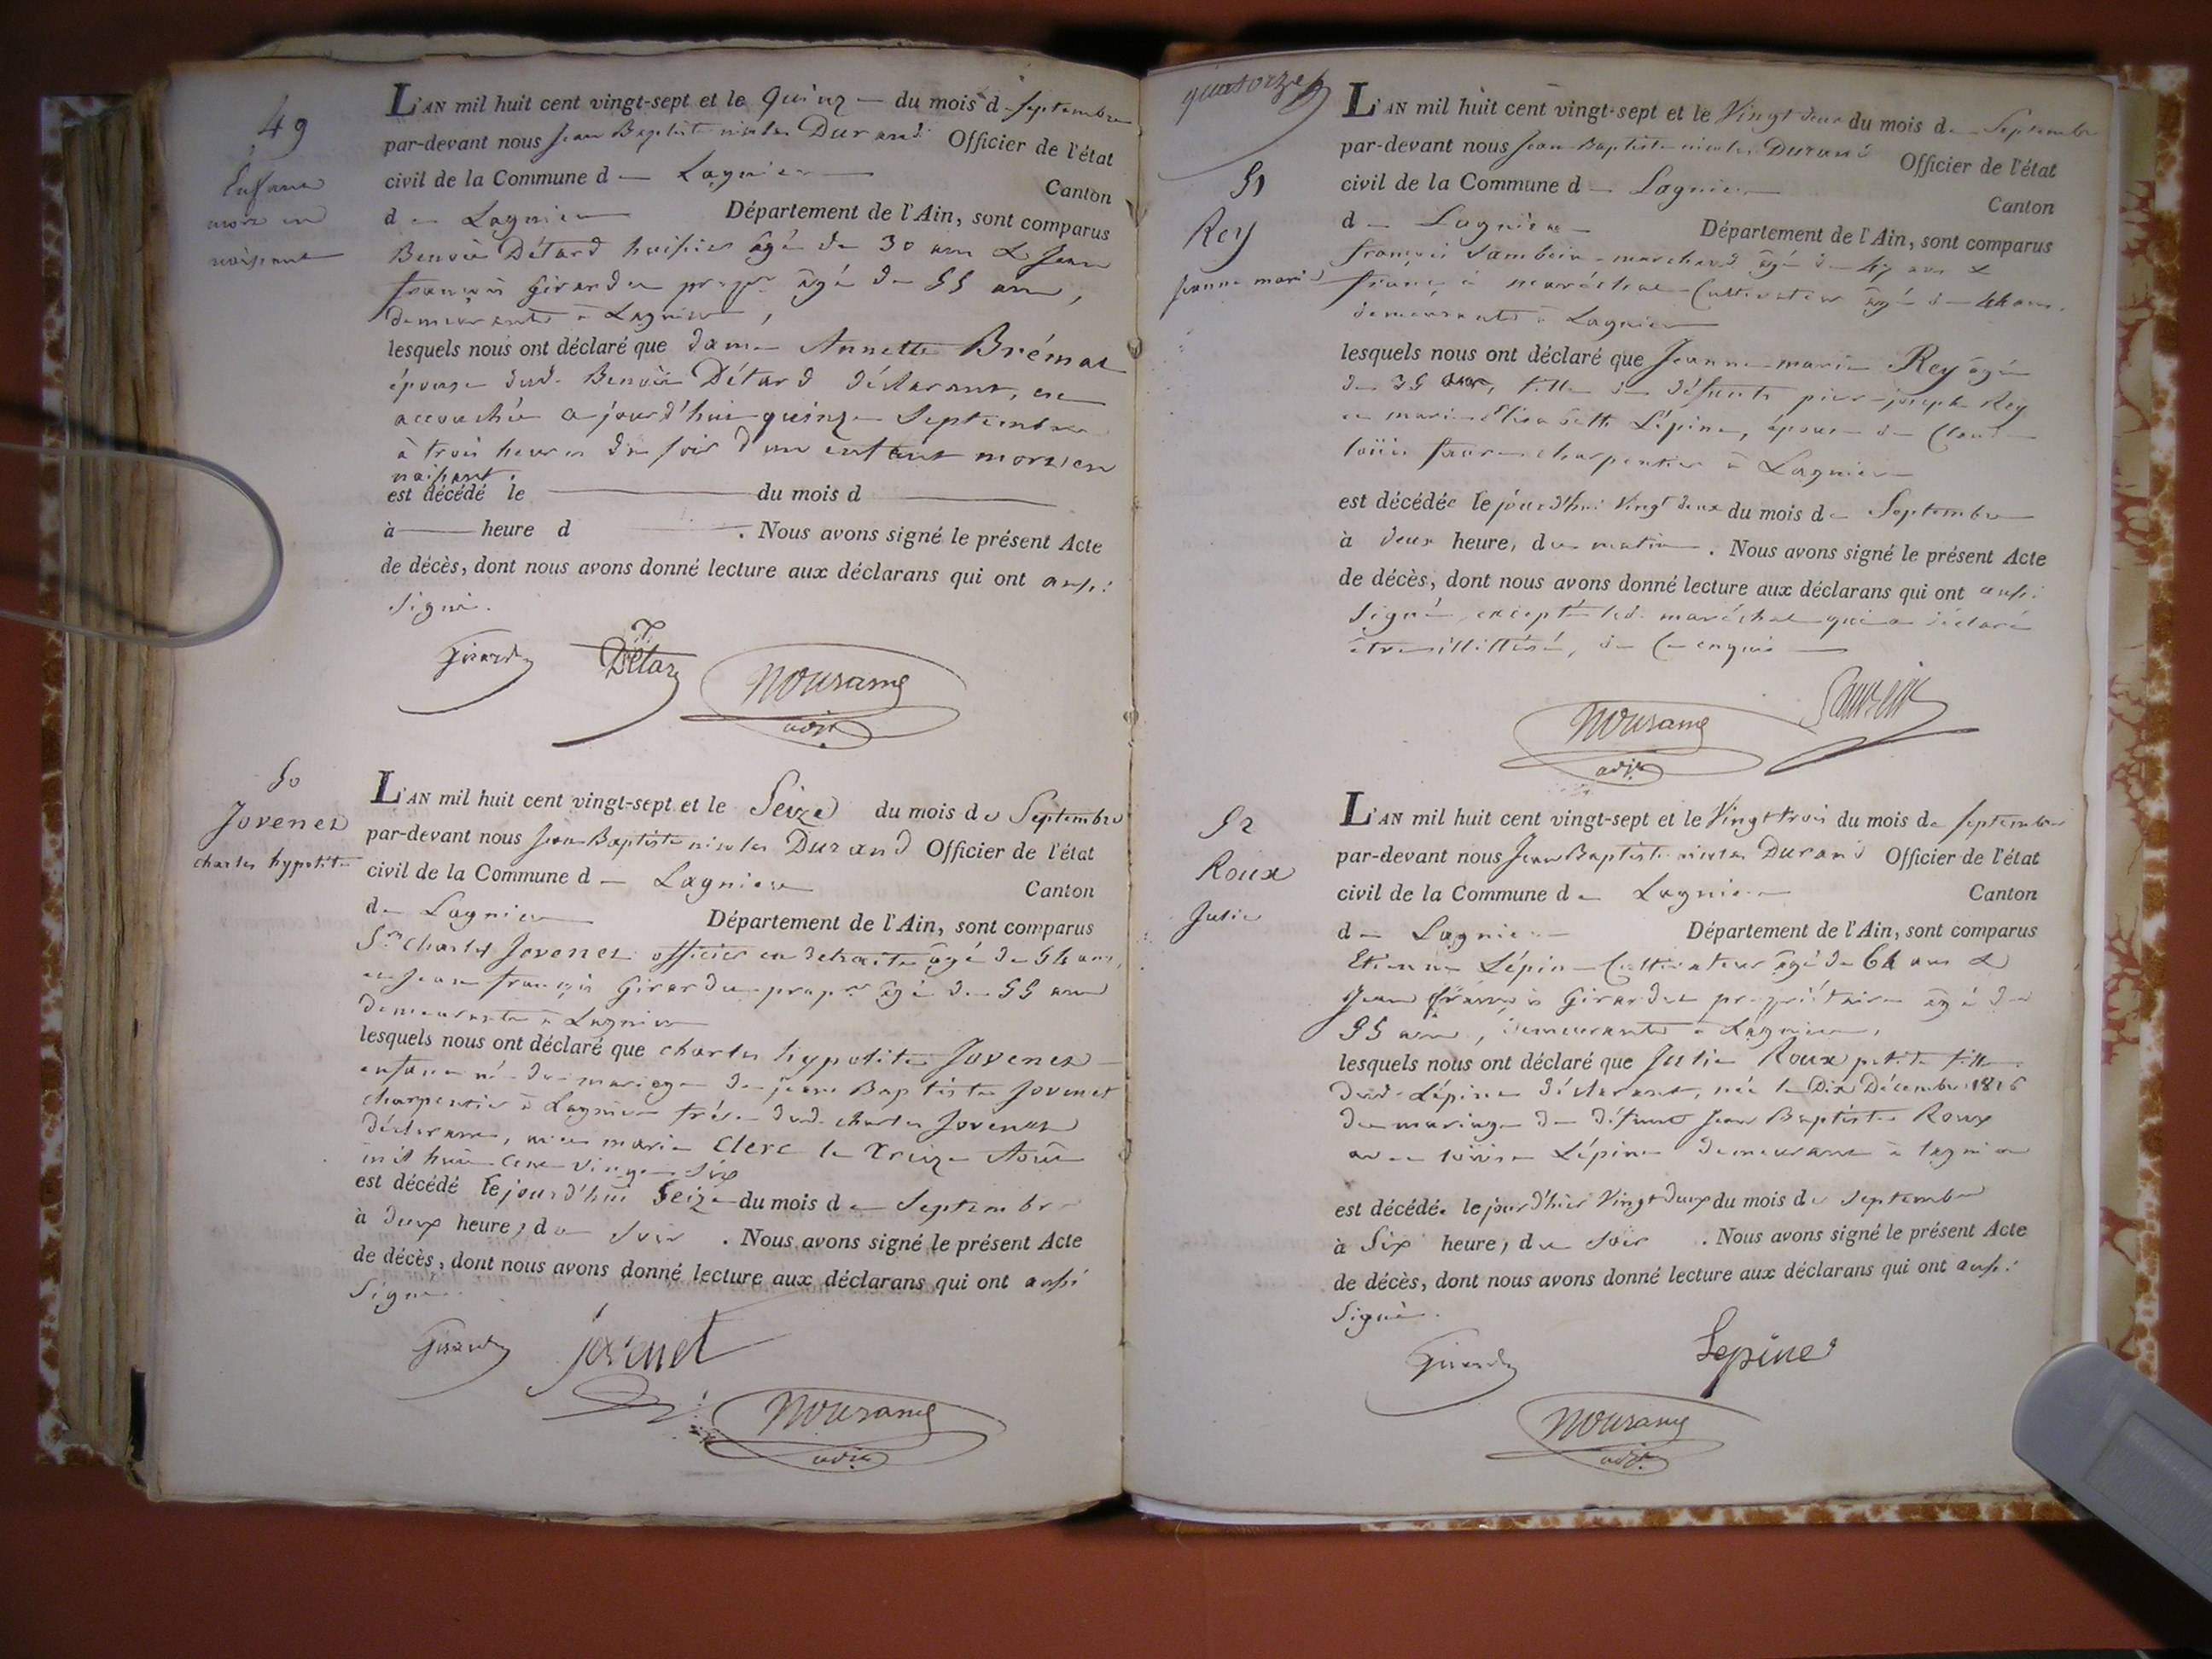 49
Enfant
mort en
naissant
L'AN mil huit cent vingt-sept et le Quinze du mois de Septembre
par-devant nous Jean Baptiste nicolas Durand Officier de l'état
civil de la Commune de Lagnieu Canton
de Lagnieu Département de l'Ain, sont comparus
Benoit Détard huissier âgé de 30 ans & Jean
françois Girardet propre âgé de 55 ans,
demeurants à Lagnieu,
lesquels nous ont déclaré que dame Annette Brémat
épouse dud. Benoit Détard déclarant, est
accouchée a jourd'hui quinze Septembre
à trois heures du soir d'un enfant mort en
naissant.
est décédé le du mois d
à heure d . Nous avons signé le présent Acte
de décès, dont nous avons donné lecture aux déclarans qui ont aussi
signé.
Girardet Détard
adjt
50
Jovenet
charles hypolite
L'AN mil huit cent vingt-sept et le Seize du mois de Septembre
par-devant nous Jean Baptiste nicolas Durand Officier de l'état
civil de la Commune de Lagnieu Canton
de Lagnieu Département de l'Ain, sont comparus
Sr. Charles Jovenet officier en retraite âgé de 54 ans,
et Jean françois Girardet propre âgé de 55 ans
demeurants à Lagnieu
lesquels nous ont déclaré que charles hypolite Jovenet
enfant né du mariage de jean Baptiste Jovenet
charpentier à Lagnieu frère dud. charles Jovenet
déclarant, avec marie Clerc le treize Août
mil huit cent vingt six
est décédé le jourd'hui Seize du mois de Septembre
à deux heures du soir . Nous avons signé le présent Acte
de décès, dont nous avons donné lecture aux déclarans qui ont aussi
signé.
Girardet jovenet
adjt
quatorze
51
Rey
Jeanne marie
L'AN mil huit cent vingt-sept et le Vingt deux du mois de Septembre
par-devant nous Jean Baptiste nicolas Durand Officier de l'état
civil de la Commune de Lagnieu Canton
de Lagnieu Département de l'Ain, sont comparus
françois marchand âgé de 47 ans &
françois maréchal Cultivateur âgé de 44 ans.
demeurants à Lagnieu
lesquels nous ont déclaré que Jeanne marie Rey âgée
de 35 ans, fille de défunts pierre joseph Rey
et marie Elisabeth Lépine, épouse de Claude
louis faure charpentier à Lagnieu
est décédée le jourd'hui Vingt deux du mois de Septembre
à deux heures du matin . Nous avons signé le présent Acte
de décès, dont nous avons donné lecture aux déclarans qui ont aussi
signé, excepté led. maréchal qui a déclaré
être illittéré, de ce enquis
adjt
52
Roux
Julie
L'AN mil huit cent vingt-sept et le Vingt trois du mois de Septembre
par-devant nous Jean Baptiste nicolas Durand Officier de l'état
civil de la Commune de Lagnieu Canton
de Lagnieu Département de l'Ain, sont comparus
Etienne Lépine Cultivateur âgé de 64 ans &
Jean françois Girardet propriétaire âgé de
55 ans, demeurants à Lagnieu,
lesquels nous ont déclaré que Julie Roux petite fille
dud. Lépine déclarant, née le Dix Décembre 1816
du mariage de défunt Jean Baptiste Roux
avec louise Lépine demeurant à lagnieu
est décédée le jour d'hier Vingt deux du mois de Septembre
à Six heures du soir . Nous avons signé le présent Acte
de décès, dont nous avons donné lecture aux déclarans qui ont aussi
signé.
Girardet Lepine
adjt